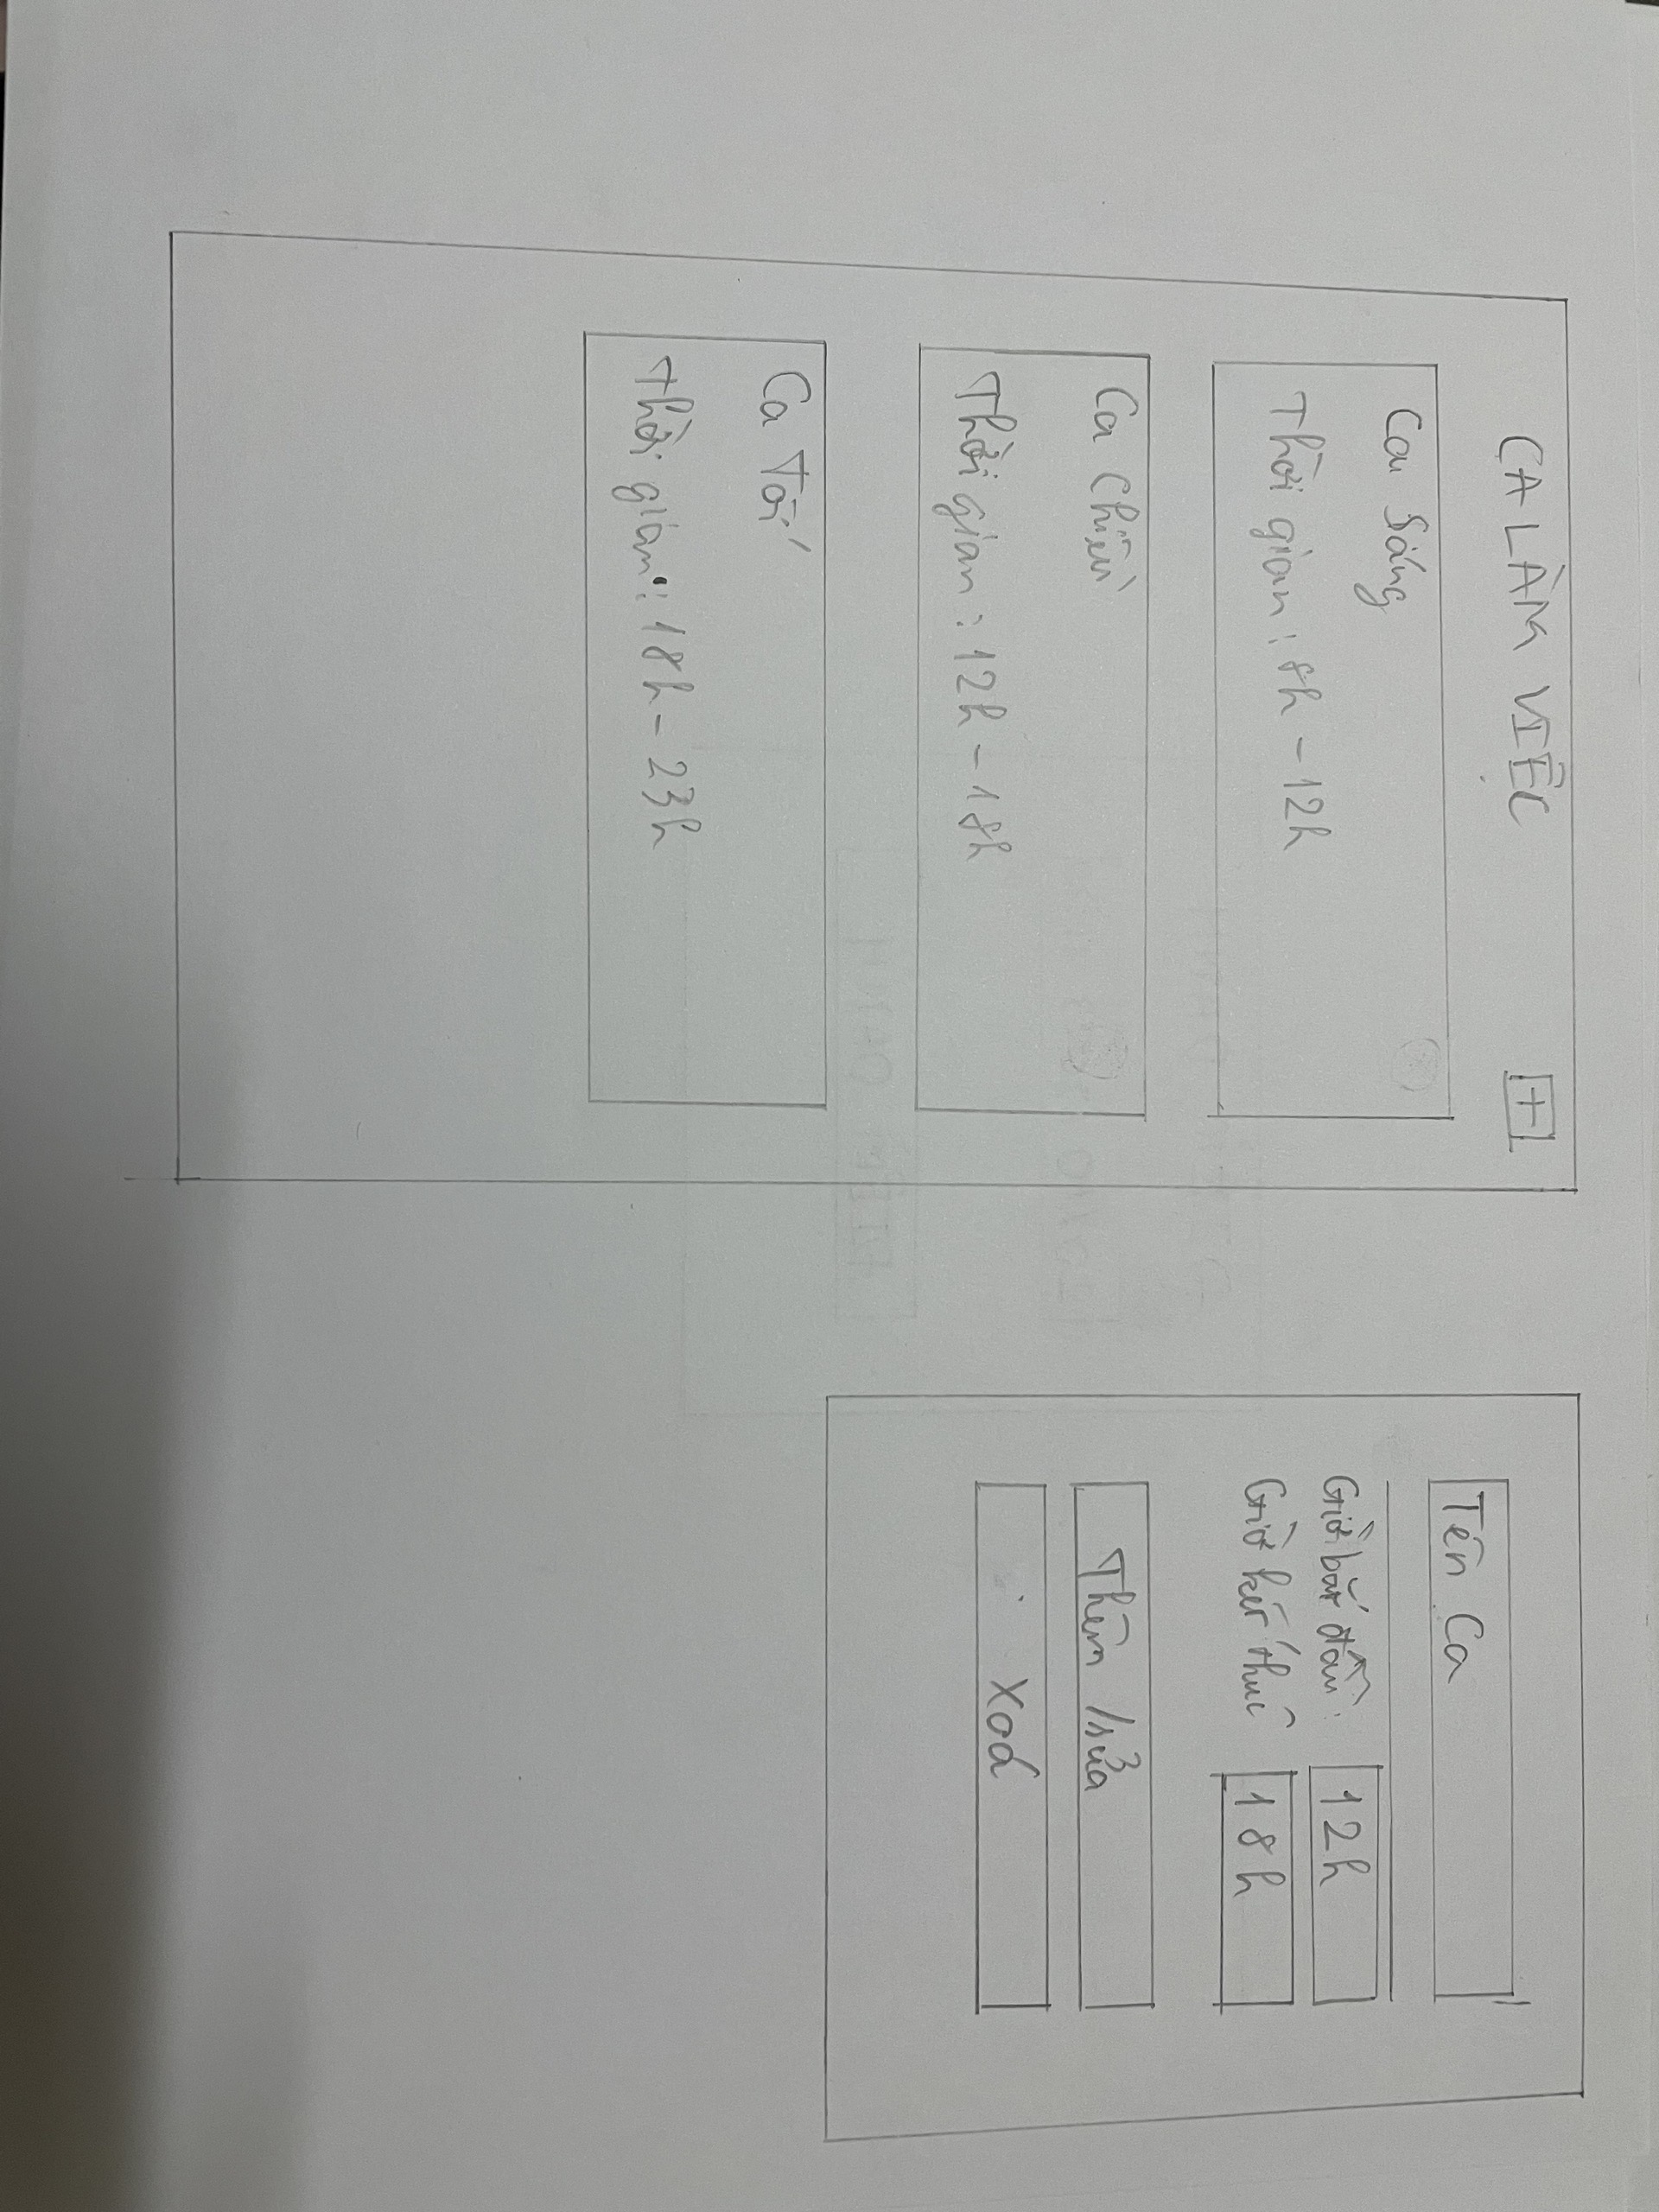 CA LÀM VIỆC
+
Ca Sáng
Thời gian : 8h - 12h
Ca Chiều
Thời gian : 12h - 18h
Ca Tối
Thời gian : 18h - 23h
Tên Ca
Giờ bắt đầu : 12h
Giờ kết thúc 18h
Thêm / sửa
Xoá